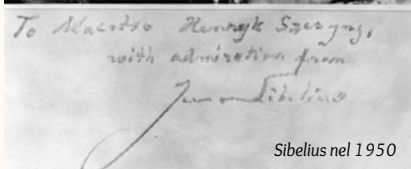 To Maestro Henryk Szeryng,
with admiration from
Jean Sibelius
Sibelius nel 1950